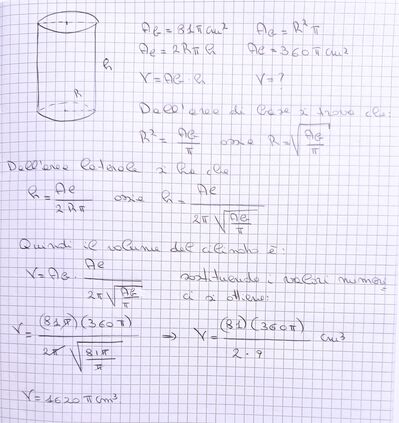 h
R
Ab = 81π cm² Ab = R²π
Aℓ = 2Rπh Aℓ = 360π cm²
V = Ab · h V = ?
Dall'area di base si trova che:
R² = Ab/π ossia R = √(Ab/π)
Dall'area laterale si ha che
h = Aℓ/2Rπ ossia h = Aℓ/2π√(Ab/π)
Quindi il volume del cilindro è:
V = Ab · Aℓ/2π√(Ab/π) sostituendo i valori numer
ci si ottiene:
V = (81π)(360π)/2π√(81π/π) ⇒ V = (81)(360π)/2·9 cm³
V = 1620π cm³